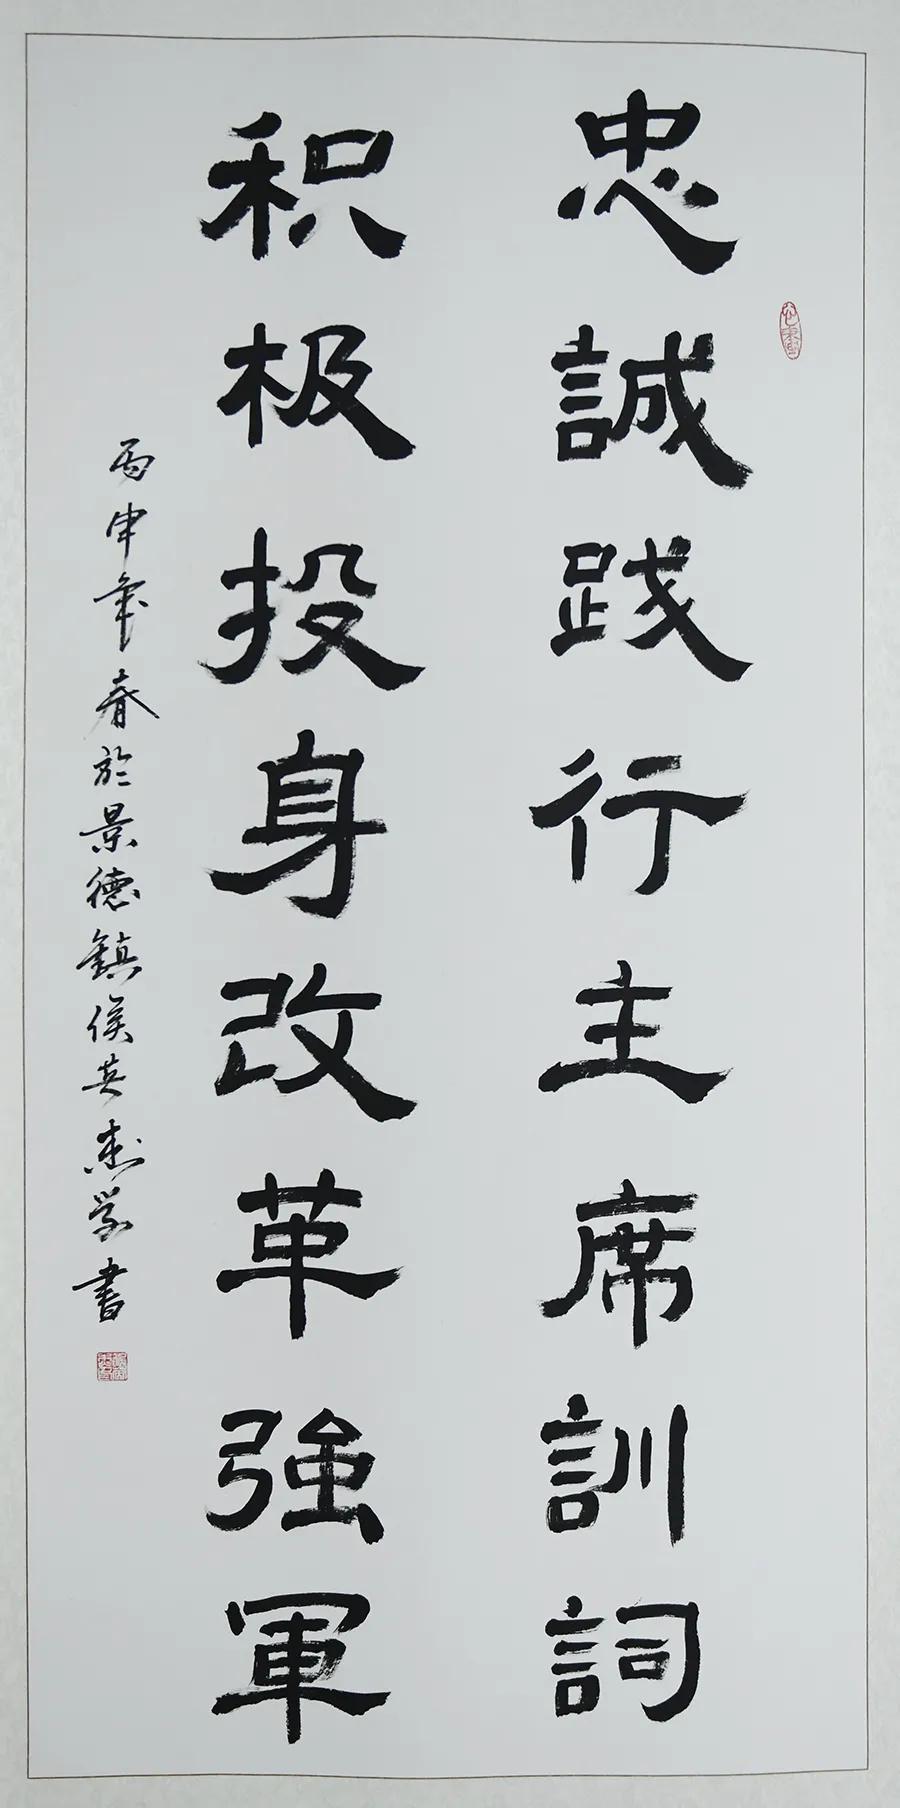 忠誠践行主席訓詞
积极投身改革強軍
丙申年春於景德鎮侯英杰学書